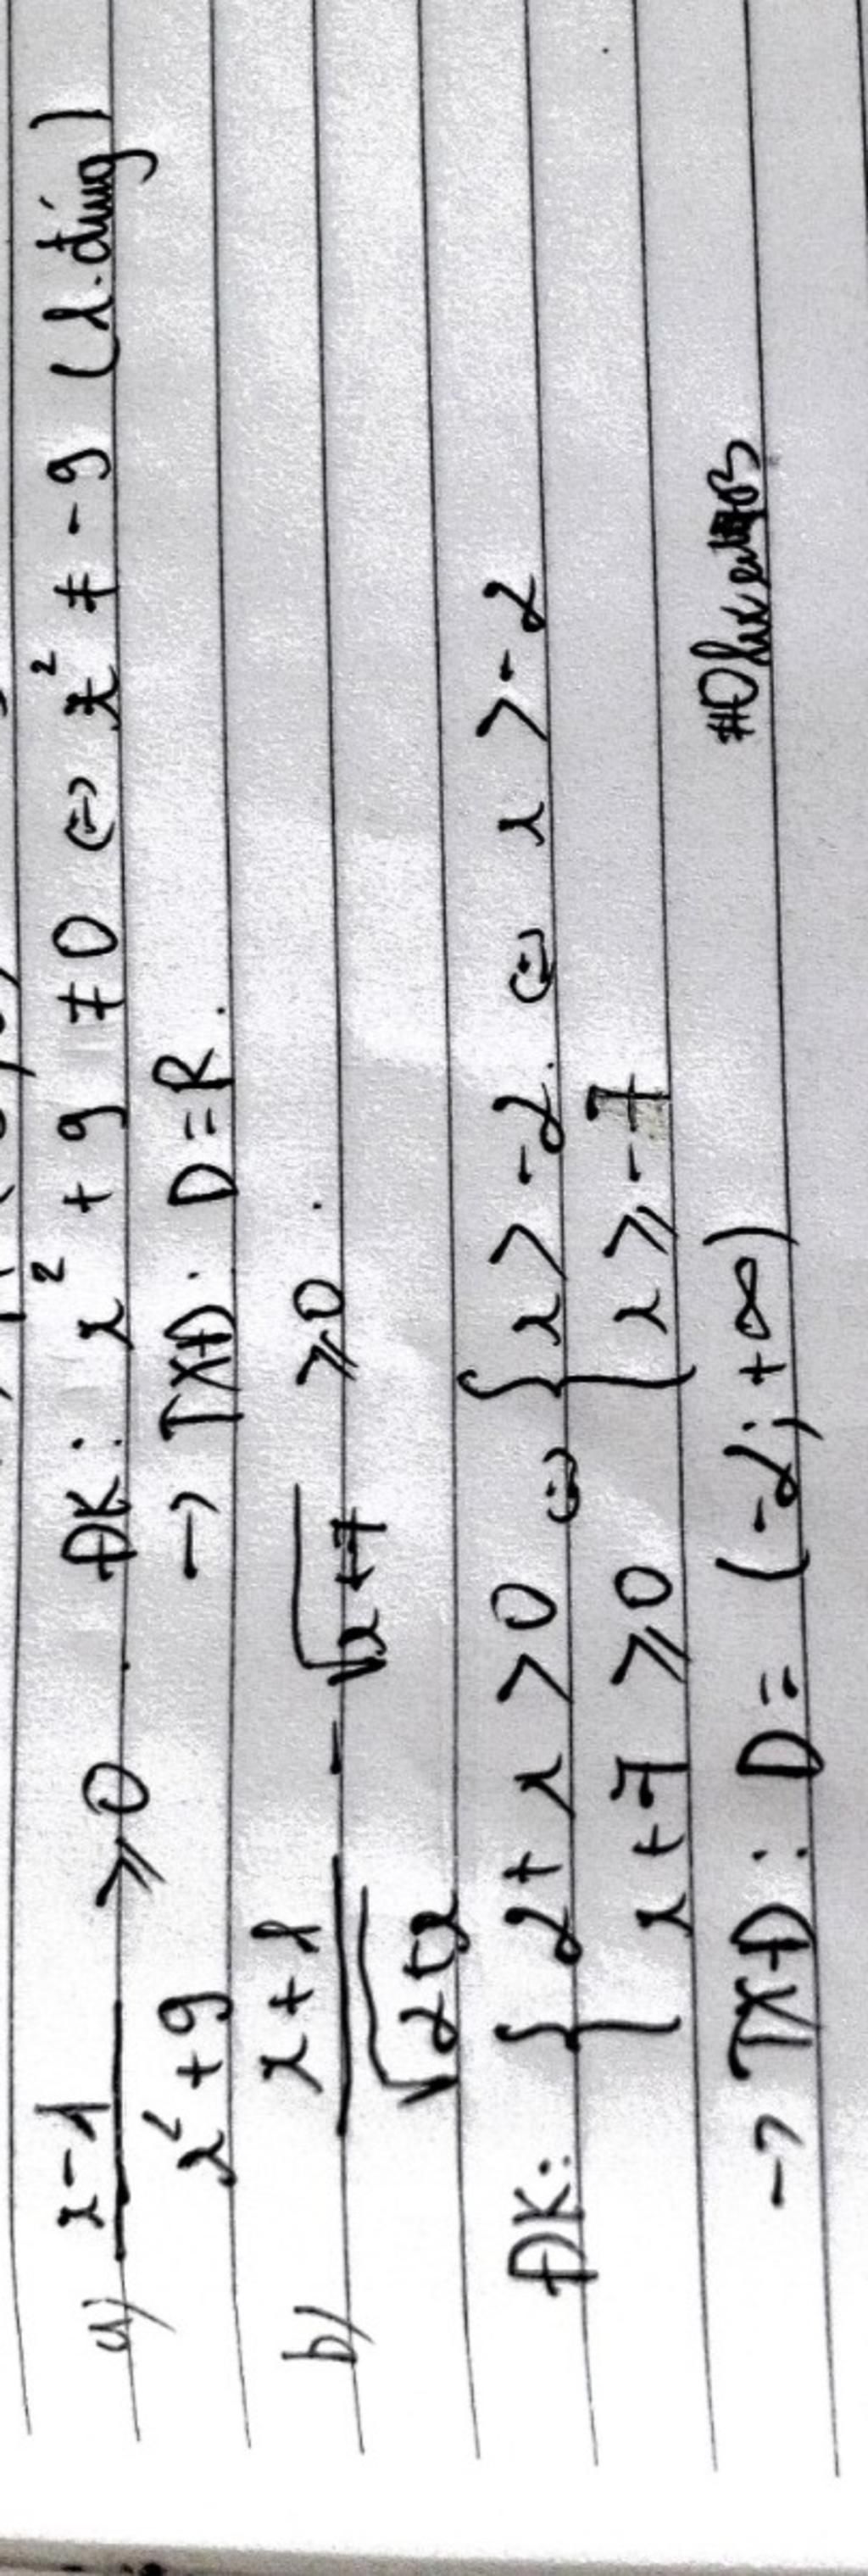 a) x-1 / x²+9 ≥ 0. ĐK: x² + 9 ≠ 0 (=) x² ≠ -9 (l.đúng)
→ TXĐ: D = R.
b) x+1 / √2+x - √x+7 ≥ 0.
ĐK: { 2+x > 0 (=) { x > -2. (=) x > -2
x+7 ≥ 0 x ≥ -7
→ TXĐ: D = (-2; +∞)